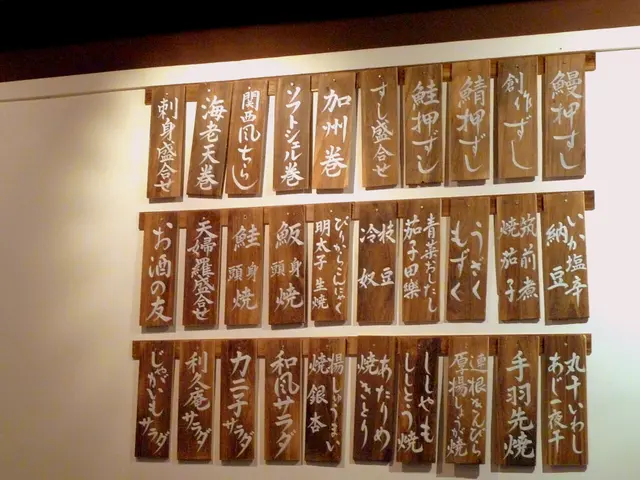 鰻押すし
創作ずし
鯖押ずし
鮭押ずし
すし盛合せ
加州巻
ソフトシェル巻
関西風ちらし
海老天巻
刺身盛合せ
いか塩辛
納豆
筑前煮
焼茄子
うざく
もずく
青菜おひたし
茄子田樂
枝豆
冷奴
ぴりからこんにゃく
明太子 生焼
魬 身頭 焼
鮭 身頭 焼
天婦羅盛合せ
お酒の友
丸干いわし
あじ一夜干
手羽先焼
連根きんぴら
厚揚しょうが焼
ししゃも
ししとう焼
あたりめ
焼きとり
揚しゅうまい
焼銀杏
和風サラダ
カニ子サラダ
利久庵サラダ
じゃがいもサラダ